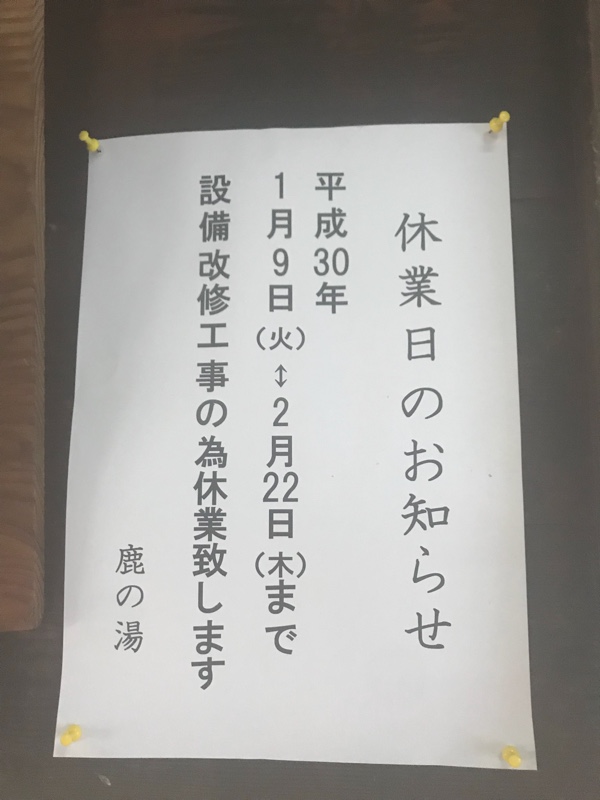 休業日のお知らせ
平成30年
1月9日(火)↕2月22日(木)まで
設備改修工事の為休業致します
鹿の湯